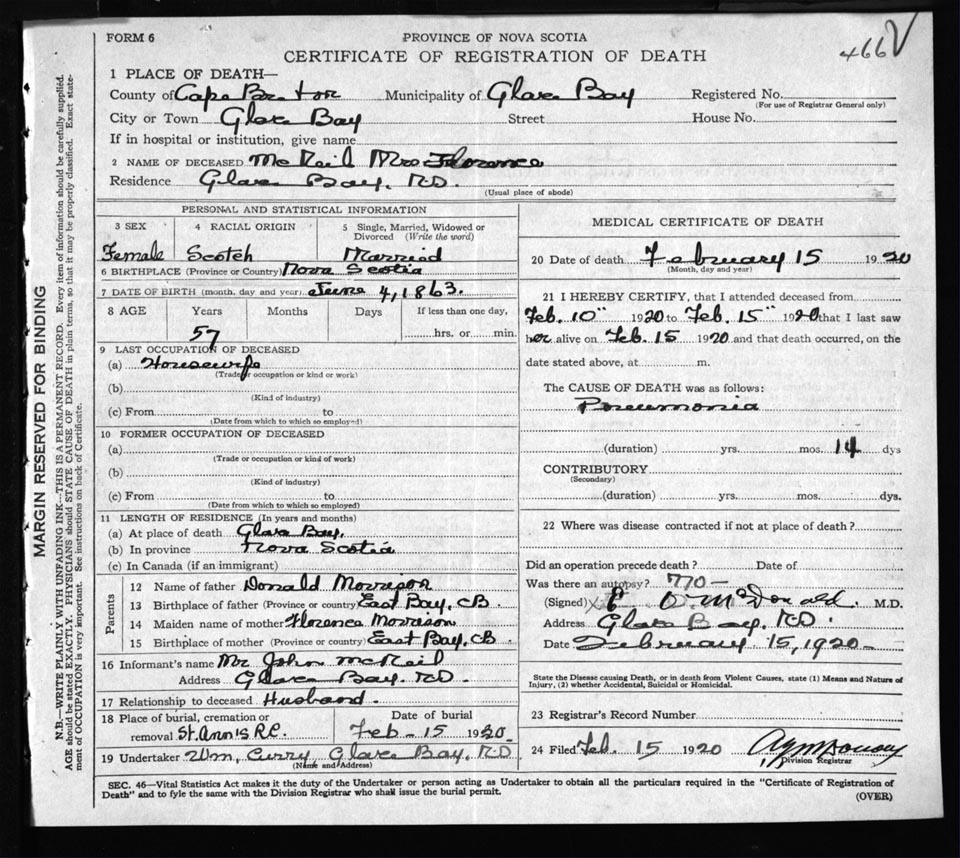 466 V
FORM 6
PROVINCE OF NOVA SCOTIA
CERTIFICATE OF REGISTRATION OF DEATH
1 PLACE OF DEATH—
County of Cape Breton Municipality of Glace Bay Registered No.
(For use of Registrar General only)
City or Town Glace Bay Street House No.
If in hospital or institution, give name
2 NAME OF DECEASED McNeil Mrs Florence
Residence Glace Bay, R.D.
(Usual place of abode)
PERSONAL AND STATISTICAL INFORMATION
3 SEX 4 RACIAL ORIGIN 5 Single, Married, Widowed or Divorced (Write the word)
Female Scotch Married
6 BIRTHPLACE (Province or Country) Nova Scotia
7 DATE OF BIRTH (month, day and year) June 4, 1863.
8 AGE Years Months Days If less than one day,
57 hrs. or min.
9 LAST OCCUPATION OF DECEASED
(a) Housewife
(Trade or occupation or kind or work)
(b)
(Kind of industry)
(c) From to
(Date from which to which so employed)
10 FORMER OCCUPATION OF DECEASED
(a)
(Trade or occupation or kind of work)
(b)
(Kind of industry)
(c) From to
(Date from which to which so employed)
11 LENGTH OF RESIDENCE (In years and months)
(a) At place of death Glace Bay,
(b) In province Nova Scotia
(c) In Canada (if an immigrant)
Parents
12 Name of father Donald Morrison
13 Birthplace of father (Province or country) East Bay, CB
14 Maiden name of mother Florence Morrison
15 Birthplace of mother (Province or country) East Bay, CB
16 Informant's name Mr John McNeil
Address Glace Bay. R.D.
17 Relationship to deceased Husband.
18 Place of burial, cremation or removal St. Ann's R.C. Date of burial Feb-15 1920.
19 Undertaker Wm, Curry, Glace Bay, R.D
(Name and Address)
MEDICAL CERTIFICATE OF DEATH
20 Date of death February 15 1920
(Month, day and year)
21 I HEREBY CERTIFY, that I attended deceased from
Feb. 10" 1920 to Feb. 15" 1920 that I last saw
her alive on Feb. 15 1920 and that death occurred, on the
date stated above, at m.
The CAUSE OF DEATH was as follows:
Pneumonia
(duration) yrs. mos. 14 dys
CONTRIBUTORY
(Secondary)
(duration) yrs. mos. dys.
22 Where was disease contracted if not at place of death?
Did an operation precede death? Date of
Was there an autopsy? no-
(Signed) E O McDonald. M.D.
Address Glace Bay. R.D.
Date February 15, 1920-
State the Disease causing Death, or in death from Violent Causes, state (1) Means and Nature of
Injury, (2) whether Accidental, Suicidal or Homicidal.
23 Registrar's Record Number
24 Filed Feb. 15 1920
Division Registrar
SEC. 46—Vital Statistics Act makes it the duty of the Undertaker or person acting as Undertaker to obtain all the particulars required in the "Certificate of Registration of
Death" and to fyle the same with the Division Registrar who shall issue the burial permit.
(OVER)
MARGIN RESERVED FOR BINDING
N.B.—WRITE PLAINLY WITH UNFADING INK—THIS IS A PERMANENT RECORD. Every item of information should be carefully supplied.
AGE should be stated EXACTLY. PHYSICIANS should STATE CAUSE OF DEATH in plain terms, so that it may be properly classified. Exact state-
ment of OCCUPATION is very important. See instructions on back of Certificate.